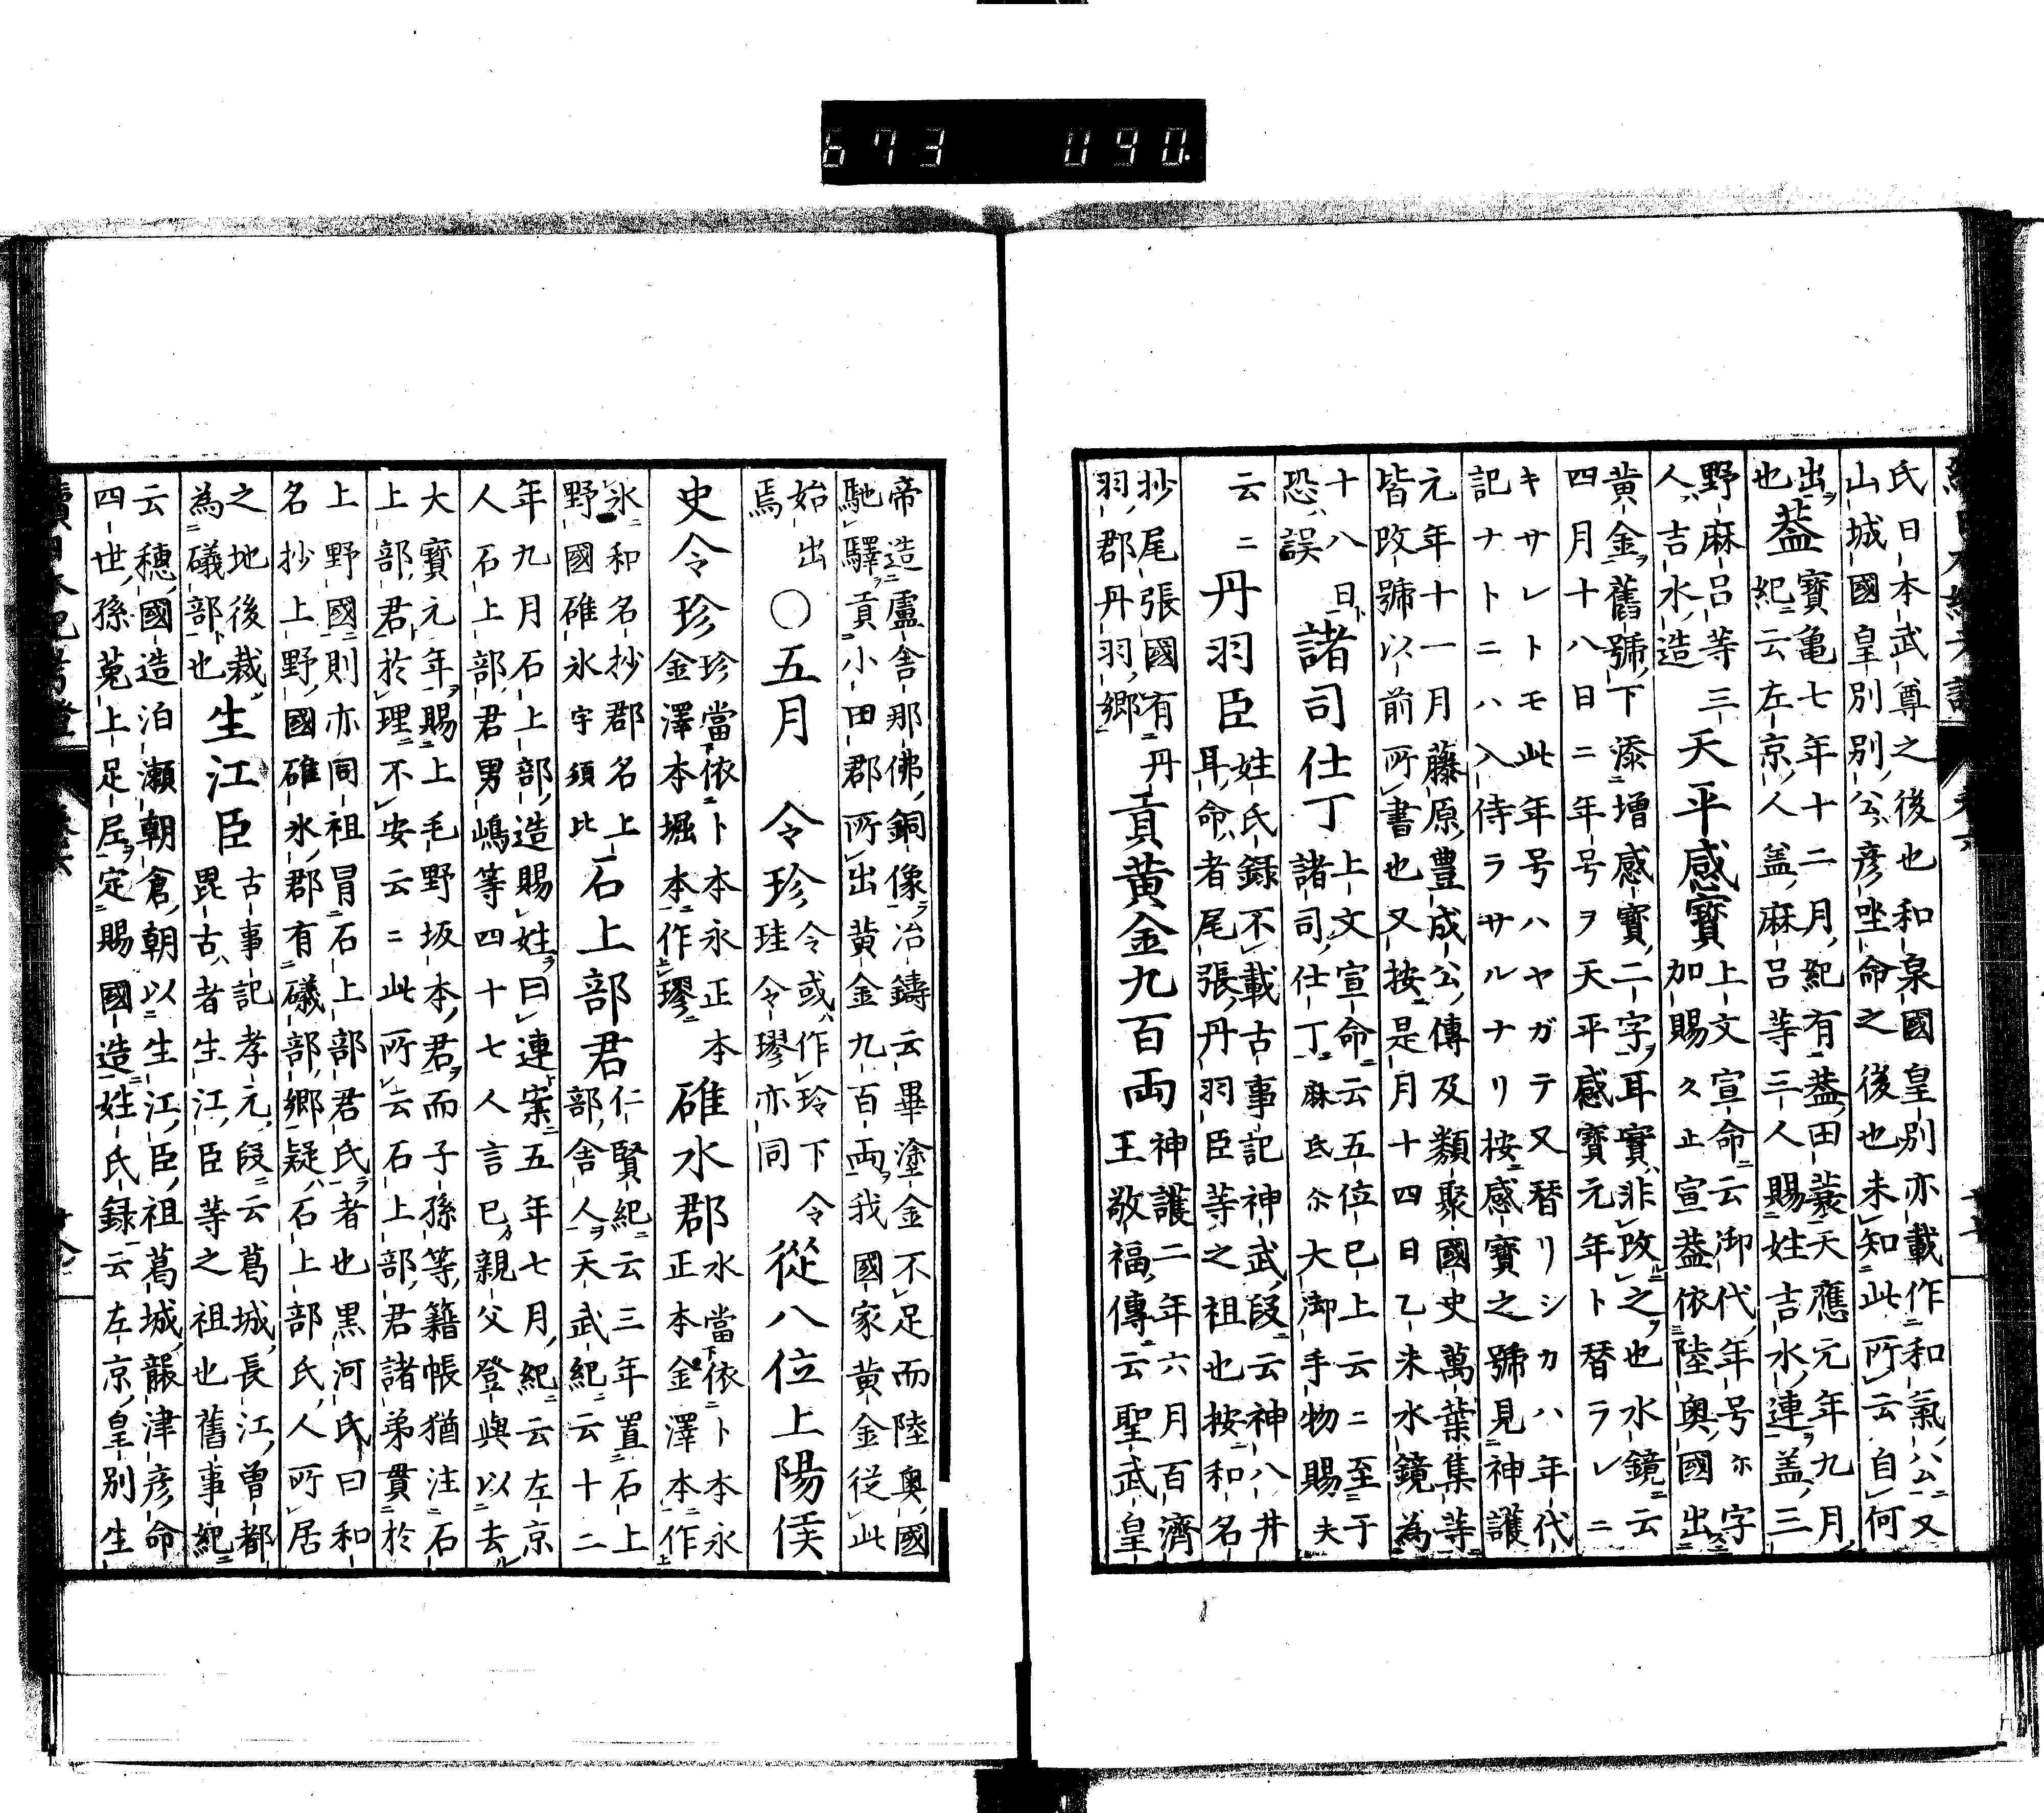 673 090.
氏日本武尊之後也和泉國皇別亦載作和氣公又
山城國皇別別公彦坐命之後也未知此所云自何
出 益 寳亀七年十二月紀有益田蓑天應元年九月
也 紀云左京人盖麻呂等三人賜姓吉水連盖三
野麻呂等三 天平感寳 上文宣命云御代年号尓字
人吉水造 加賜久止宣益依陸奥國出
黄金舊號下添増感寳二字耳實非改之也水鏡云
四月十八日ニ年号ヲ天平感寳元年ト替ラレニ
キサレトモ此年号ハヤガテ又替リシカハ年代
記ナトニハ入侍ラサルナリ按感寳之號見神護
元年十一月藤原豊成公傳及類聚國史萬葉集等
皆改號以前所書也又按是月十四日乙未水鏡為
十八日 諸司仕丁 上文宣命云五位已上云ニ至于
恐誤 諸司仕丁麻氐尓大御手物賜夫
云ニ 丹羽臣 姓氏録不載古事記神武段云神八井
耳命者尾張丹羽臣等之祖也按和名
抄尾張國有丹 貢黄金九百両 神護二年六月百濟
羽郡丹羽郷 王敬福傳云聖武皇
帝造盧舎那佛銅像冶鑄云畢塗金不足而陸奥國
馳驛貢小田郡所出黄金九百両我國家黄金従此
始出 〇五月 令珍 令或作玲下令 從八位上陽侯
焉 珪令璆亦同
史令珍 珍當依卜本永正本 碓水郡 水當依卜本永
金澤本堀本作璆 正本金澤本作
氷和名抄郡名上 石上部君 仁賢紀云三年置石上
野國碓氷宇須比 部舎人天武紀云十二
年九月石上部造賜姓曰連案五年七月紀云左京
人石上部君男嶋等四十七人言已親父登與以去
大寳元年賜上毛野坂本君而子孫等籍帳猶注石
上部君於理不安云ニ此所云石上部君諸弟貫於
上野國則亦同祖冒石上部君氏者也黒河氏曰和
名抄上野國碓氷郡有礒部郷疑石上部氏人所居
之地後裁 生江臣 古事記孝元段云葛城長江曽都
為礒部也 毘古者生江臣等之祖也舊事紀
云穗國造泊瀬朝倉朝以生江臣祖葛城襲津彦命
四世孫菟上足尼定賜國造姓氏録云左京皇別生